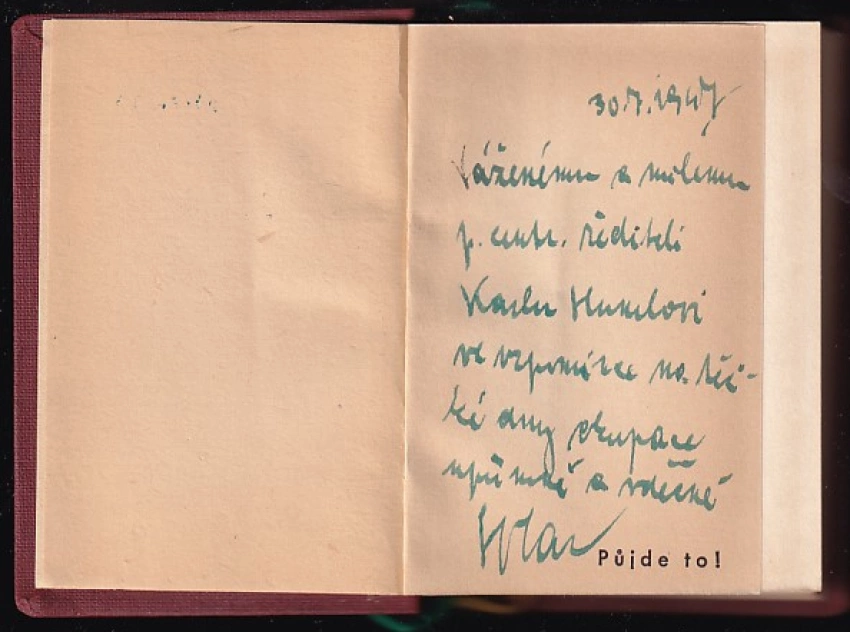 30.7.1947
Váženému a milému
p. centr. řediteli
Karlu
ve vzpomínce na těž-
ké dny okupace
upřímně a vděčně
Půjde to!